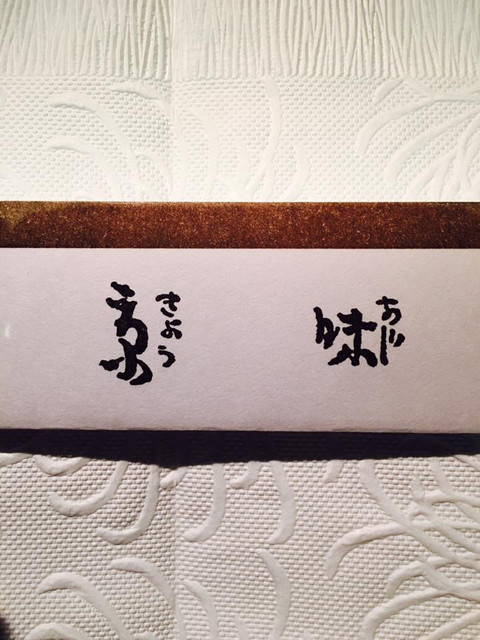 京
きょう
味
あじ